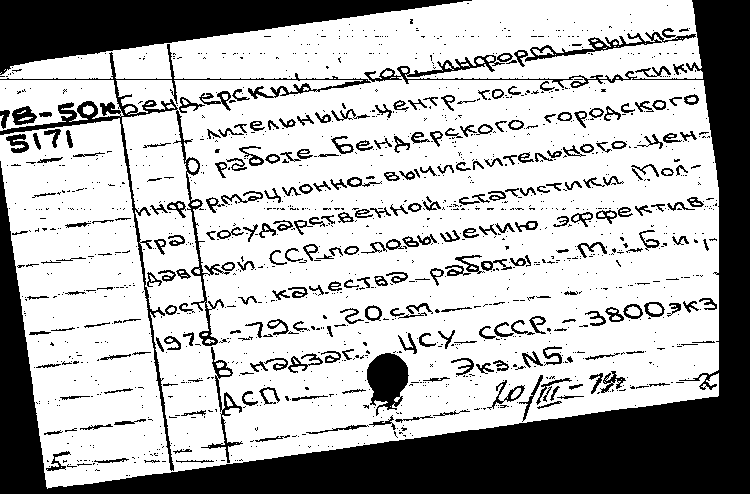 78-50к Бендерский гор. информ.-вычис-
5171 лительный центр гос. статистики
О работе Бендерского городского
информационно-вычислительного цен-
тра государственной статистики Мол-
давской ССР по повышению эффектив-
ности и качества работы. - М.: Б.и.,
1978. - 79 с.; 20 см.
В надзаг.: ЦСУ СССР. - 3800 экз
ДСП.: Экз. N5.
20/III-79г. 2
5